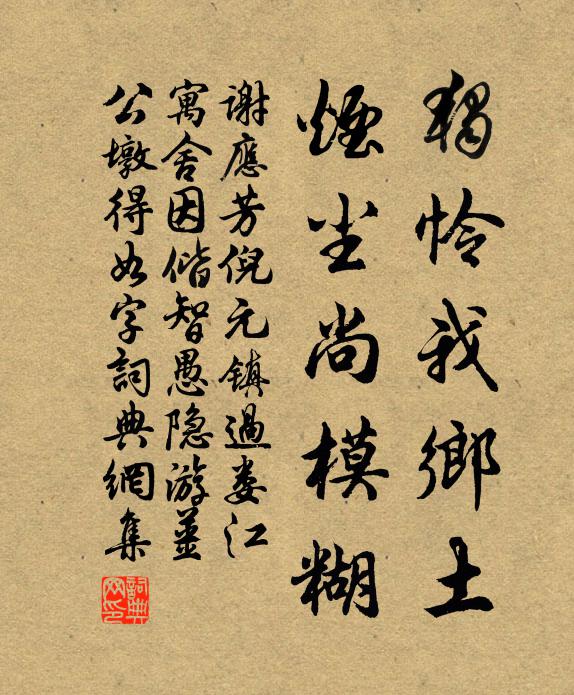 獨怜我鄉土
煙尘尚模糊
謝應芳倪元鎮過娄江
寓舍因偕智愚隐游姜
公墩得如字詞典網集
詞典
网印